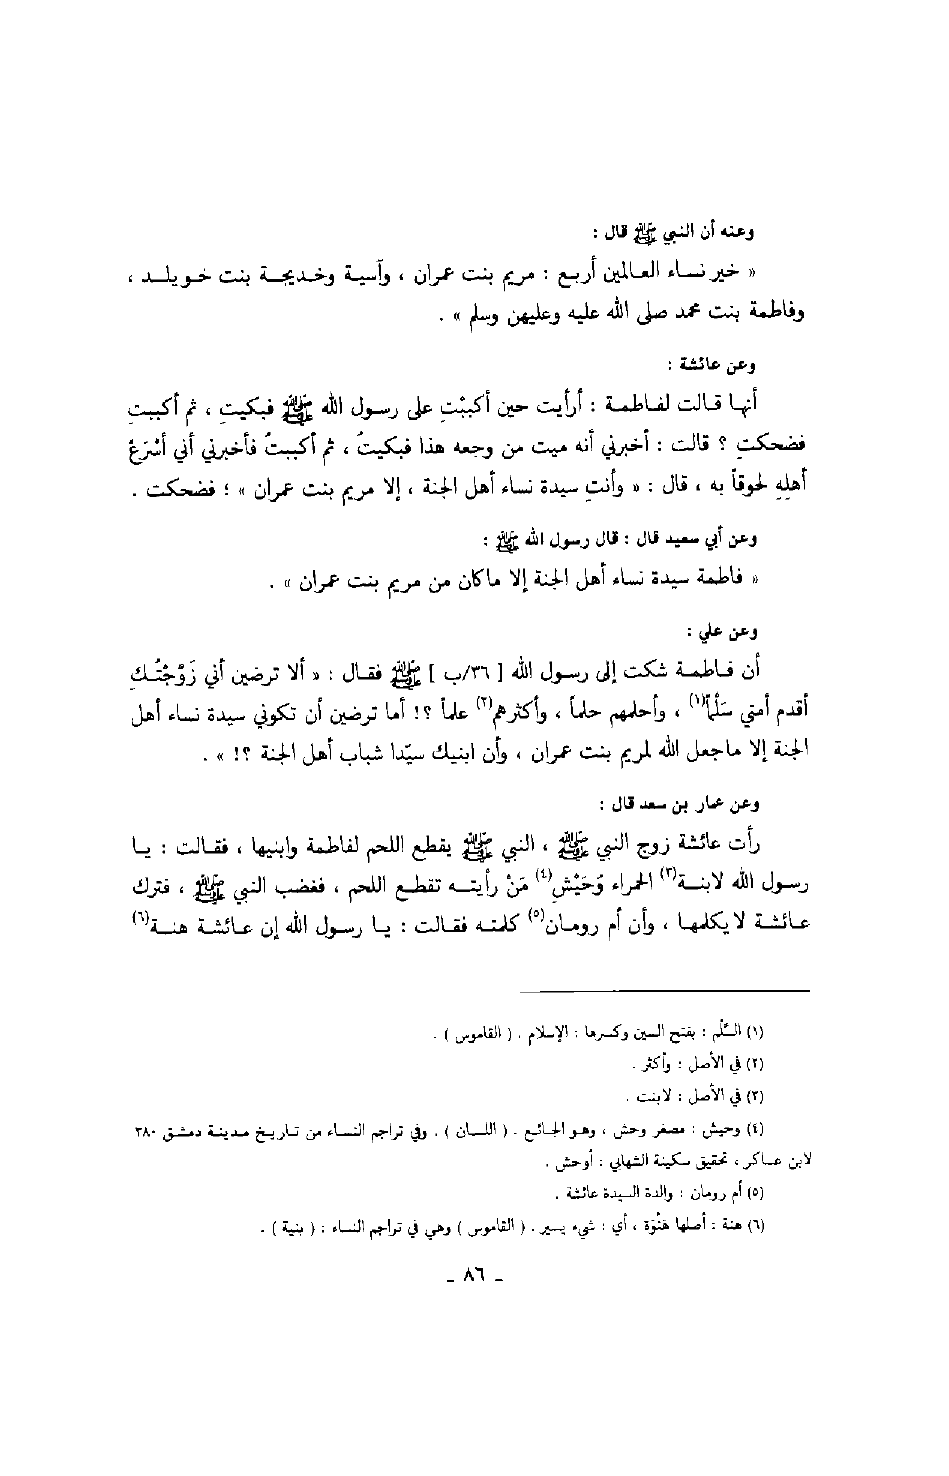 وعنه أن النبي ﷺ قال :
« خير نساء العالمين أربع : مريم بنت عمران ، وآسية وخديجة بنت خويلد ،
وفاطمة بنت محمد صلى الله عليه وعليهن وسلم » .
وعن عائشة :
أنها قالت لفاطمة : أرأيت حين أكببْتِ على رسول الله ﷺ فبكيتِ ، ثم أكببتِ
فضحكتِ ؟ قالت : أخبرني أنه ميت من وجعه هذا فبكيتُ ، ثم أكببتُ فأخبرني أني أسْرَعُ
أهلِهِ لحوقاً به ، قال : « وأنتِ سيدة نساء أهل الجنة ، إلا مريم بنت عمران » ؛ فضحكت .
وعن أبي سعيد قال : قال رسول الله ﷺ :
« فاطمة سيدة نساء أهل الجنة إلا ماكان من مريم بنت عمران » .
وعن علي :
أن فاطمة شكت إلى رسول الله [ ٣٦/ب ] ﷺ فقال : « ألا ترضين أني زَوَّجْتُكِ
أقدم أمتي سَلْماً(١) ، وأحلمهم حلماً ، وأكثرهم(٢) علماً ؟! أما ترضين أن تكوني سيدة نساء أهل
الجنة إلا ماجعل الله لمريم بنت عمران ، وأن ابنيك سيّدا شباب أهل الجنة ؟! » .
وعن عمار بن سعد قال :
رأت عائشة زوج النبي ﷺ ، النبي ﷺ يقطع اللحم لفاطمة وابنيها ، فقالت : يا
رسول الله لابنة(٣) الحمراء وُحَيْشٍ(٤) مَنْ رأيته تقطع اللحم ، فغضب النبي ﷺ ، فترك
عائشة لا يكلمها ، وأن أم رومان(٥) كلمته فقالت : يا رسول الله إن عائشة هنة(٦)
(١) السَّلْم : بفتح السين وكسرها : الإسلام . ( القاموس ) .
(٢) في الأصل : وأكثر .
(٣) في الأصل : لابنت .
(٤) وحيش : مصغر وحش ، وهو الجائع . ( اللسان ) . وفي تراجم النساء من تاريخ مدينة دمشق ٣٨٠
لابن عساكر ، تحقيق سكينة الشهابي : أوحش .
(٥) أم رومان : والدة السيدة عائشة .
(٦) هنة : أصلها هَنْوَة ، أي : شيء يسير . ( القاموس ) وهي في تراجم النساء : ( بنية ) .
- ٨٦ -